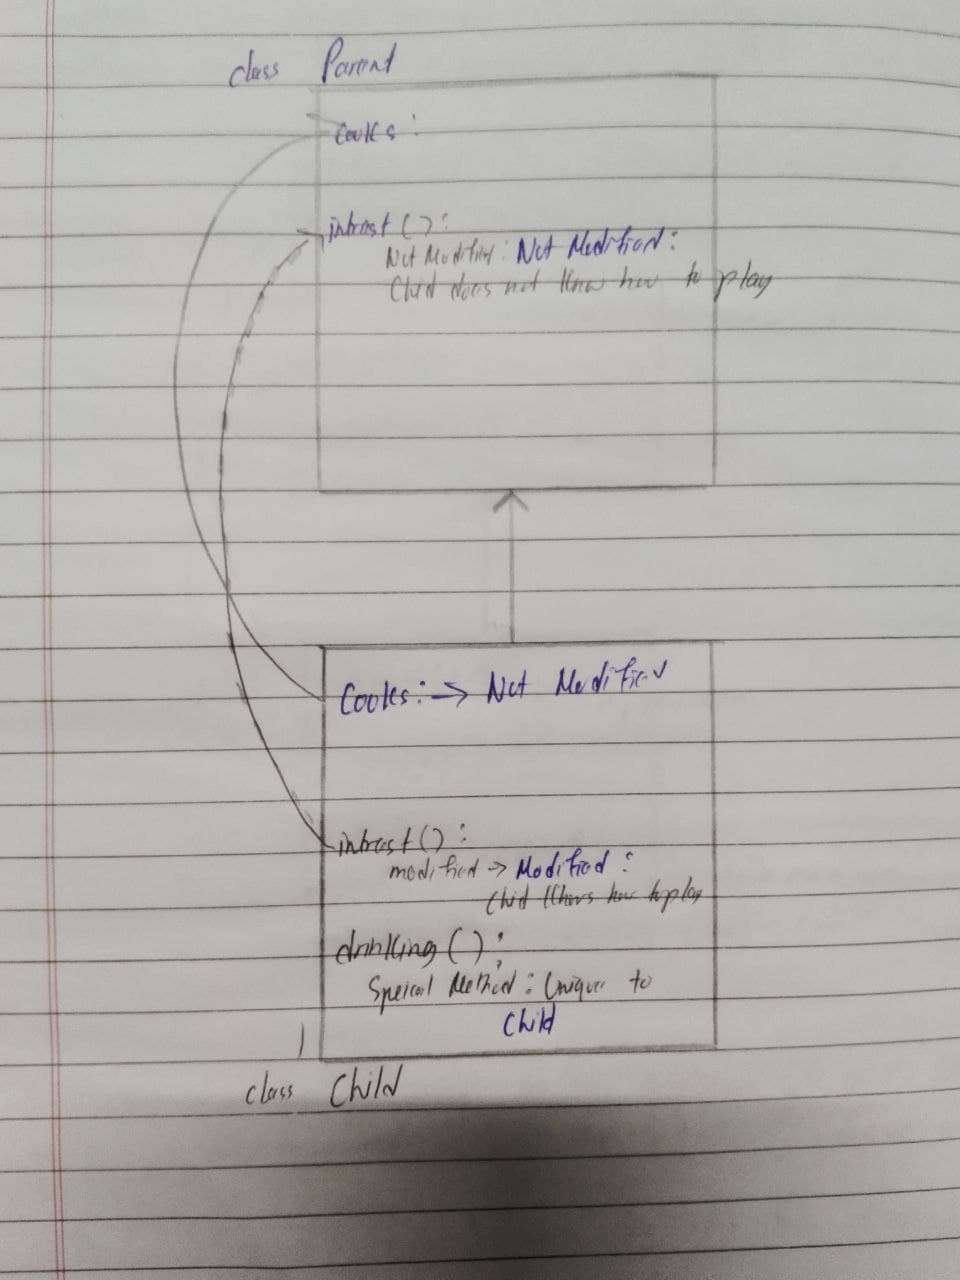 class Parent
Cooks:
intrest():
Not Modified: Not Modified:
Child does not know how to play
Cooks: → Not Modified
intrest():
modified → Modified:
Child knows how to play
drinking():
Speical Method: Unique to
Child
class Child